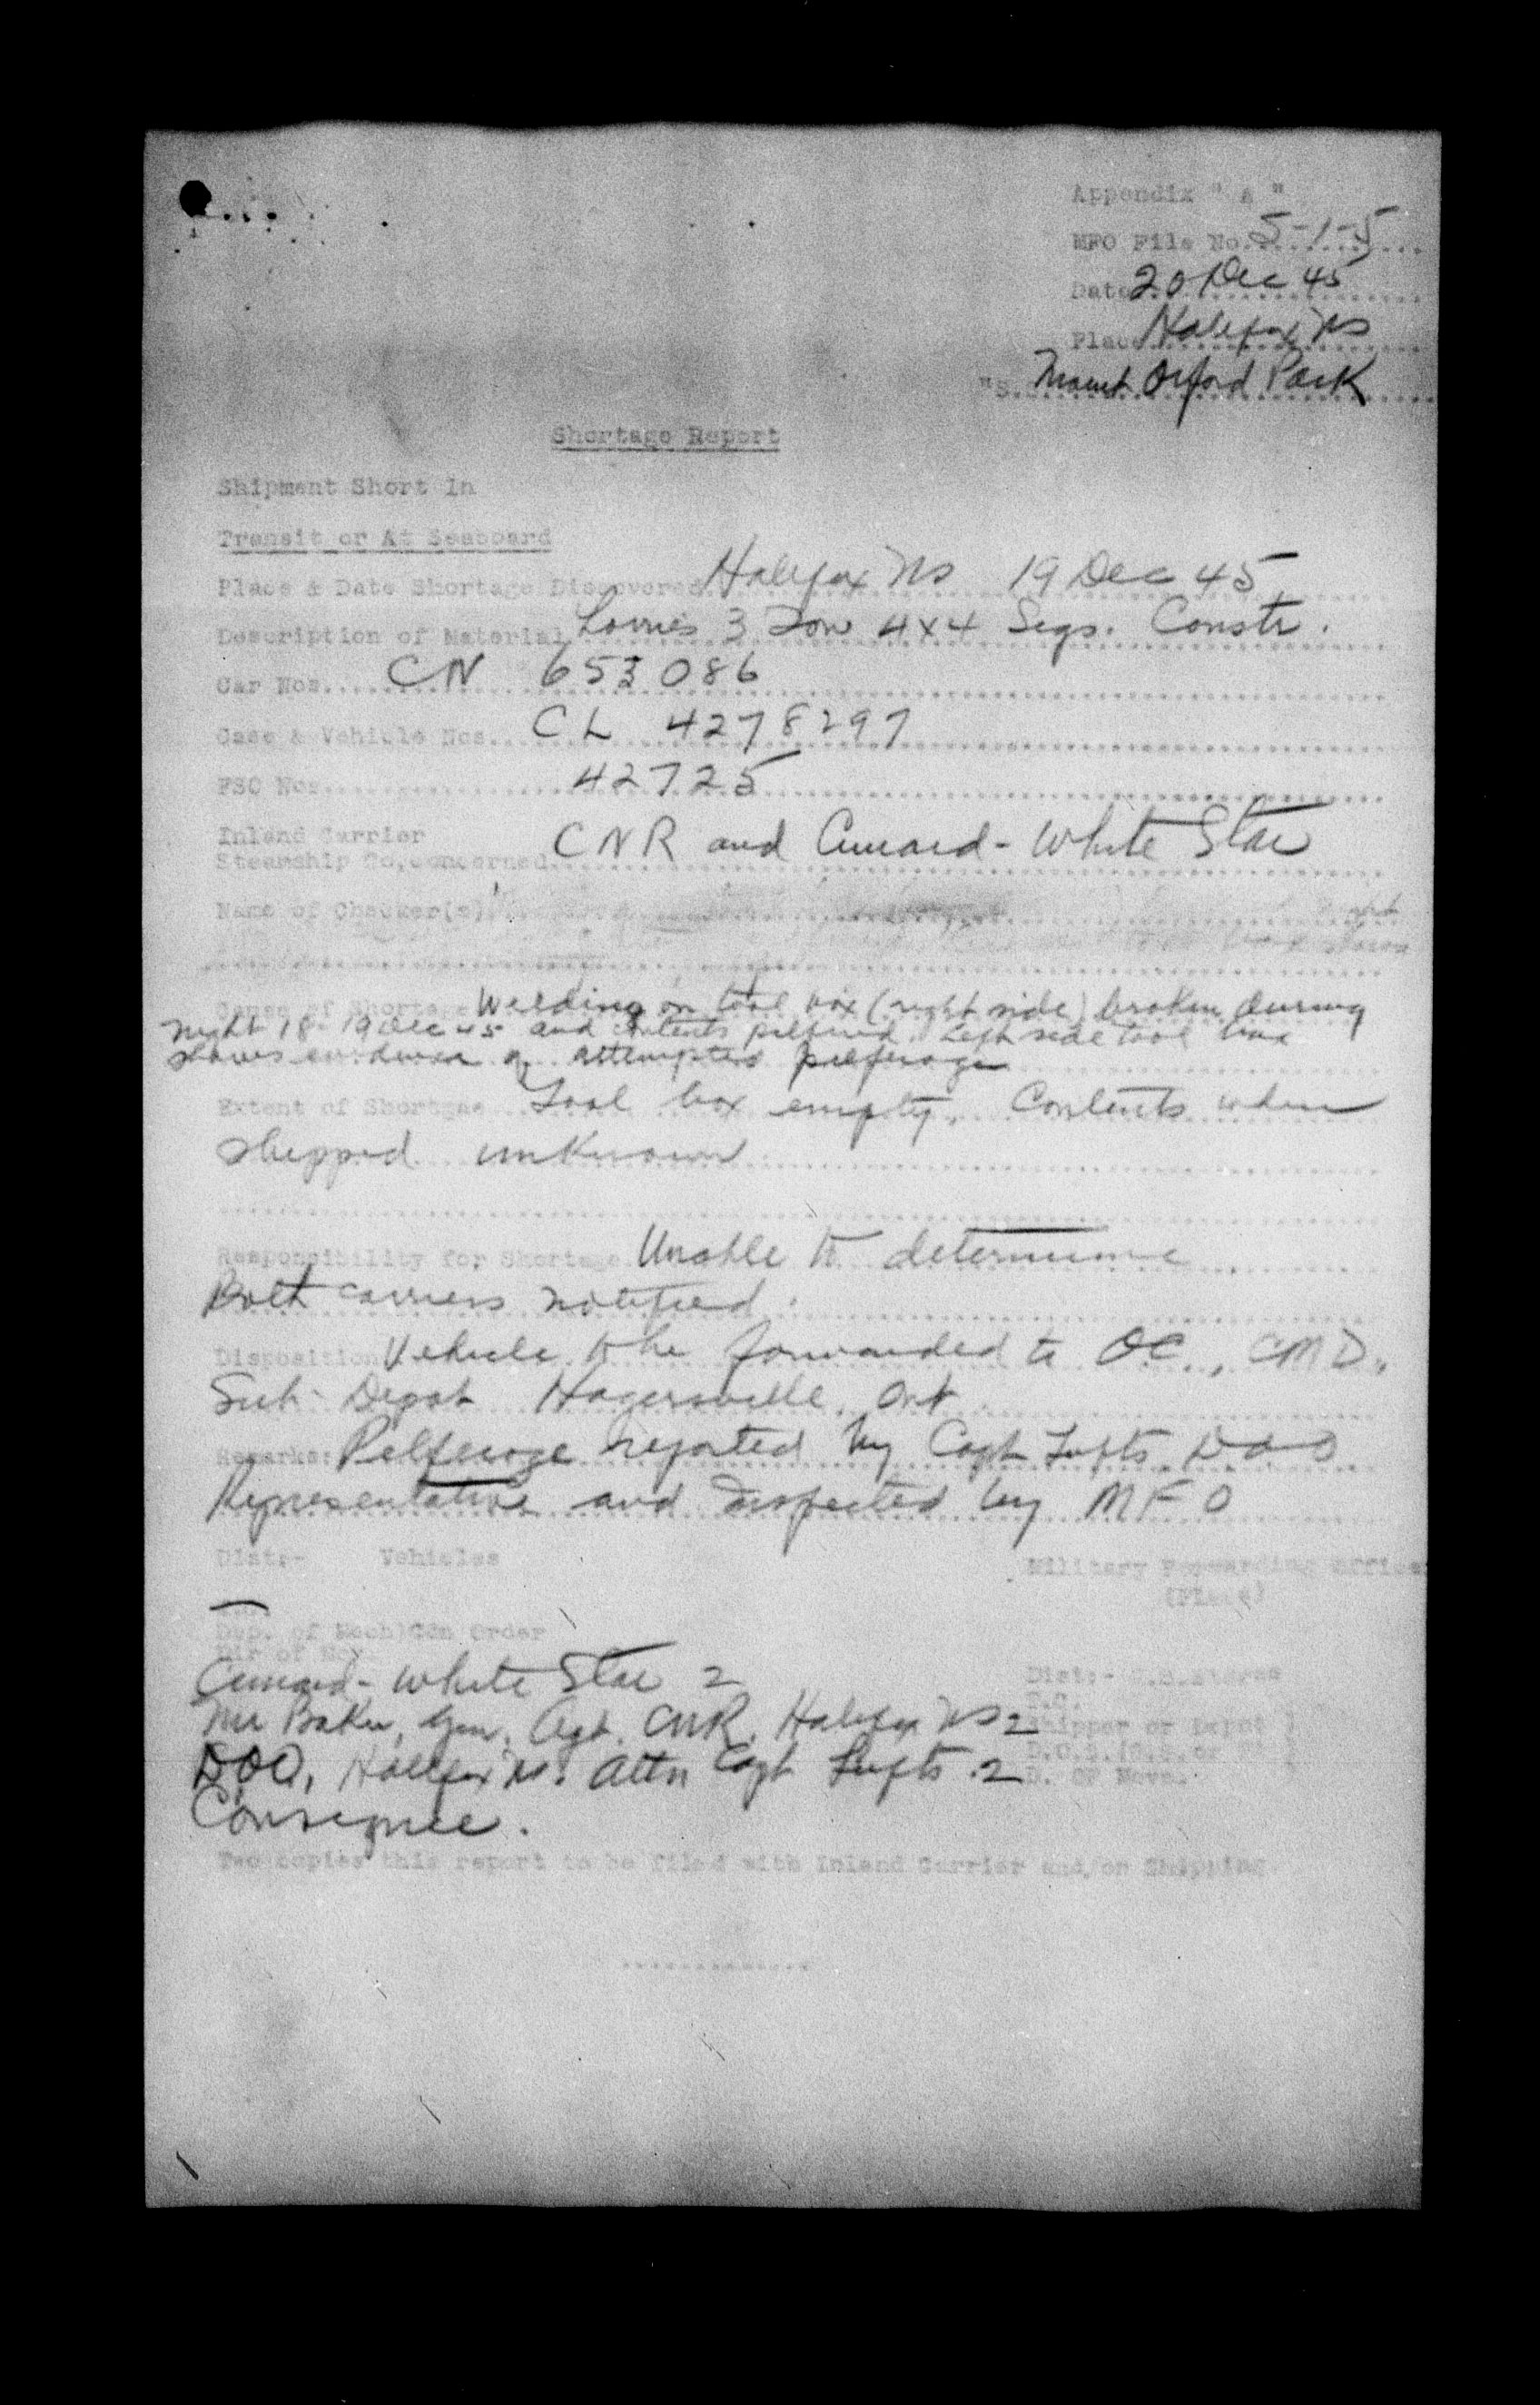 Appendix " A "
MFO File No. 5-1-5
Date 20 Dec 45
Place Halifax NS
"S. Mount Orford Park
Shortage Report
Shipment Short In
Transit or At Seaboard
Place & Date Shortage Discovered Halifax NS 19 Dec 45
Description of Material Lorries 3 Ton 4x4 Sigs. Constr.
Car Nos. CN 653086
Case & Vehicle Nos. CL 4278297
FSC Nos. 42725
Inland Carrier
Steamship Co. concerned CNR and Cunard-White Star
Name of Checker(s)
Cause of Shortage Welding on tool box (right side) broken during
night 18-19 Dec 45 and contents pilfered. Left side tool box
shows evidence of attempted pilferage
Extent of Shortgae Tool box empty. Contents when
shipped unknown
Responsibility for Shortage Unable to determine
Both carriers notified.
Disposition Vehicle to be forwarded to OC., CMD,
Sub-Depot Hagersville, Ont
Remarks: Pilferage reported by Capt Tufts DOO
Representative and inspected by MFO
Dist:- Vehicles
Military Forwarding Officer
(Place)
Dep. of Mech) Gen Order
Dir of Mov
Cunard-White Star 2
Dist:- Stores
D.C.
Mr Baker, Gen. Agt. CNR. Halifax NS 2
Shipper or Depot )
DOO, Halifax NS. Attn Capt Tufts. 2
D. of Mov.
Consignee.
Two copies this report to be filed with Inland Carrier and/or Shipping